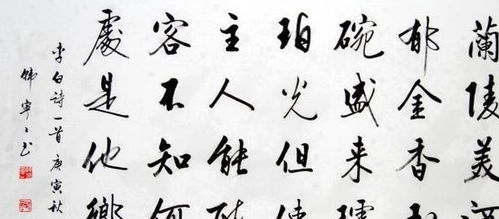 蘭陵美酒
郁金香玉
碗盛来琥
珀光但使
主人能醉
客不知何
處是他鄉
李白詩一首庚寅秋
韩寧〻书